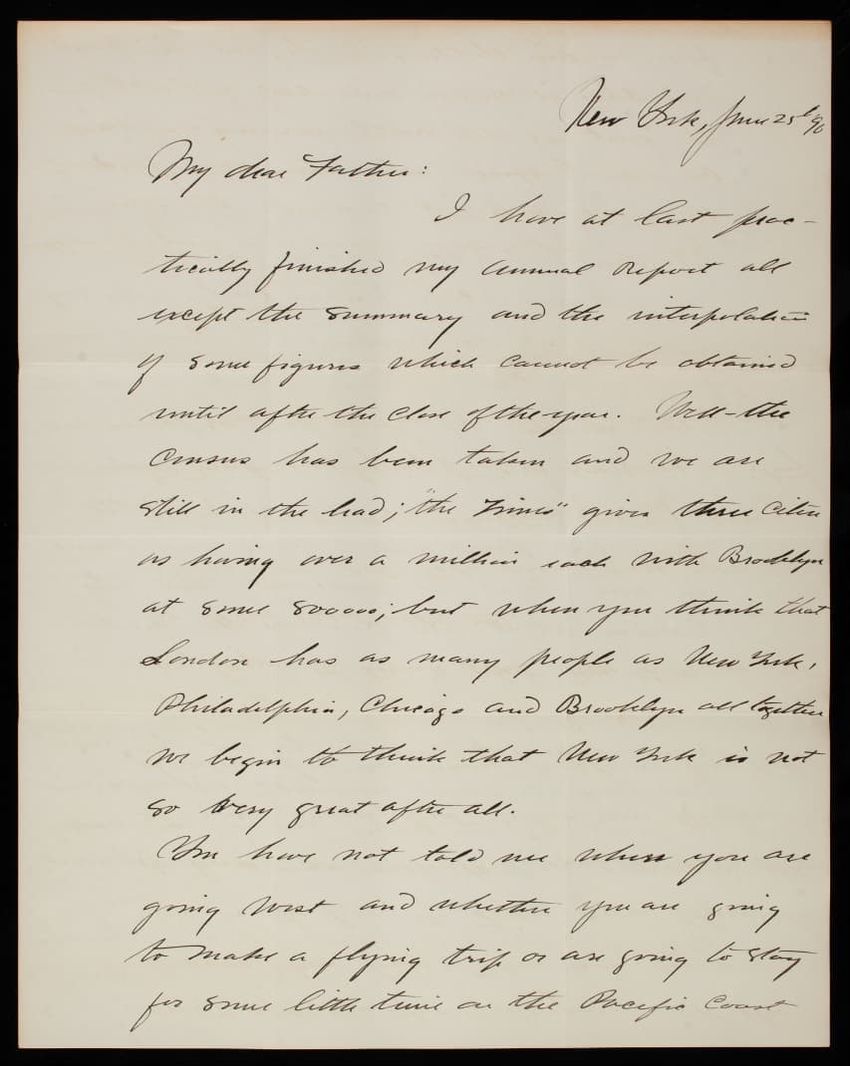 New York, June 25th 90
My dear Father:
I have at last prac-
tically finished my annual report all
except the summary and the interpolation
of some figures which cannot be obtained
until after the close of the year. Well - the
census has been taken and we are
still in the lead; "the Times" gives three cities
as having over a million each with Brooklyn
at some 800000; but when you think that
London has as many people as New York,
Philadelphia, Chicago and Brooklyn all together
we begin to think that New York is not
so very great after all.
You have not told me when you are
going West and whether you are going
to make a flying trip or are going to stay
for some little time on the Pacific Coast